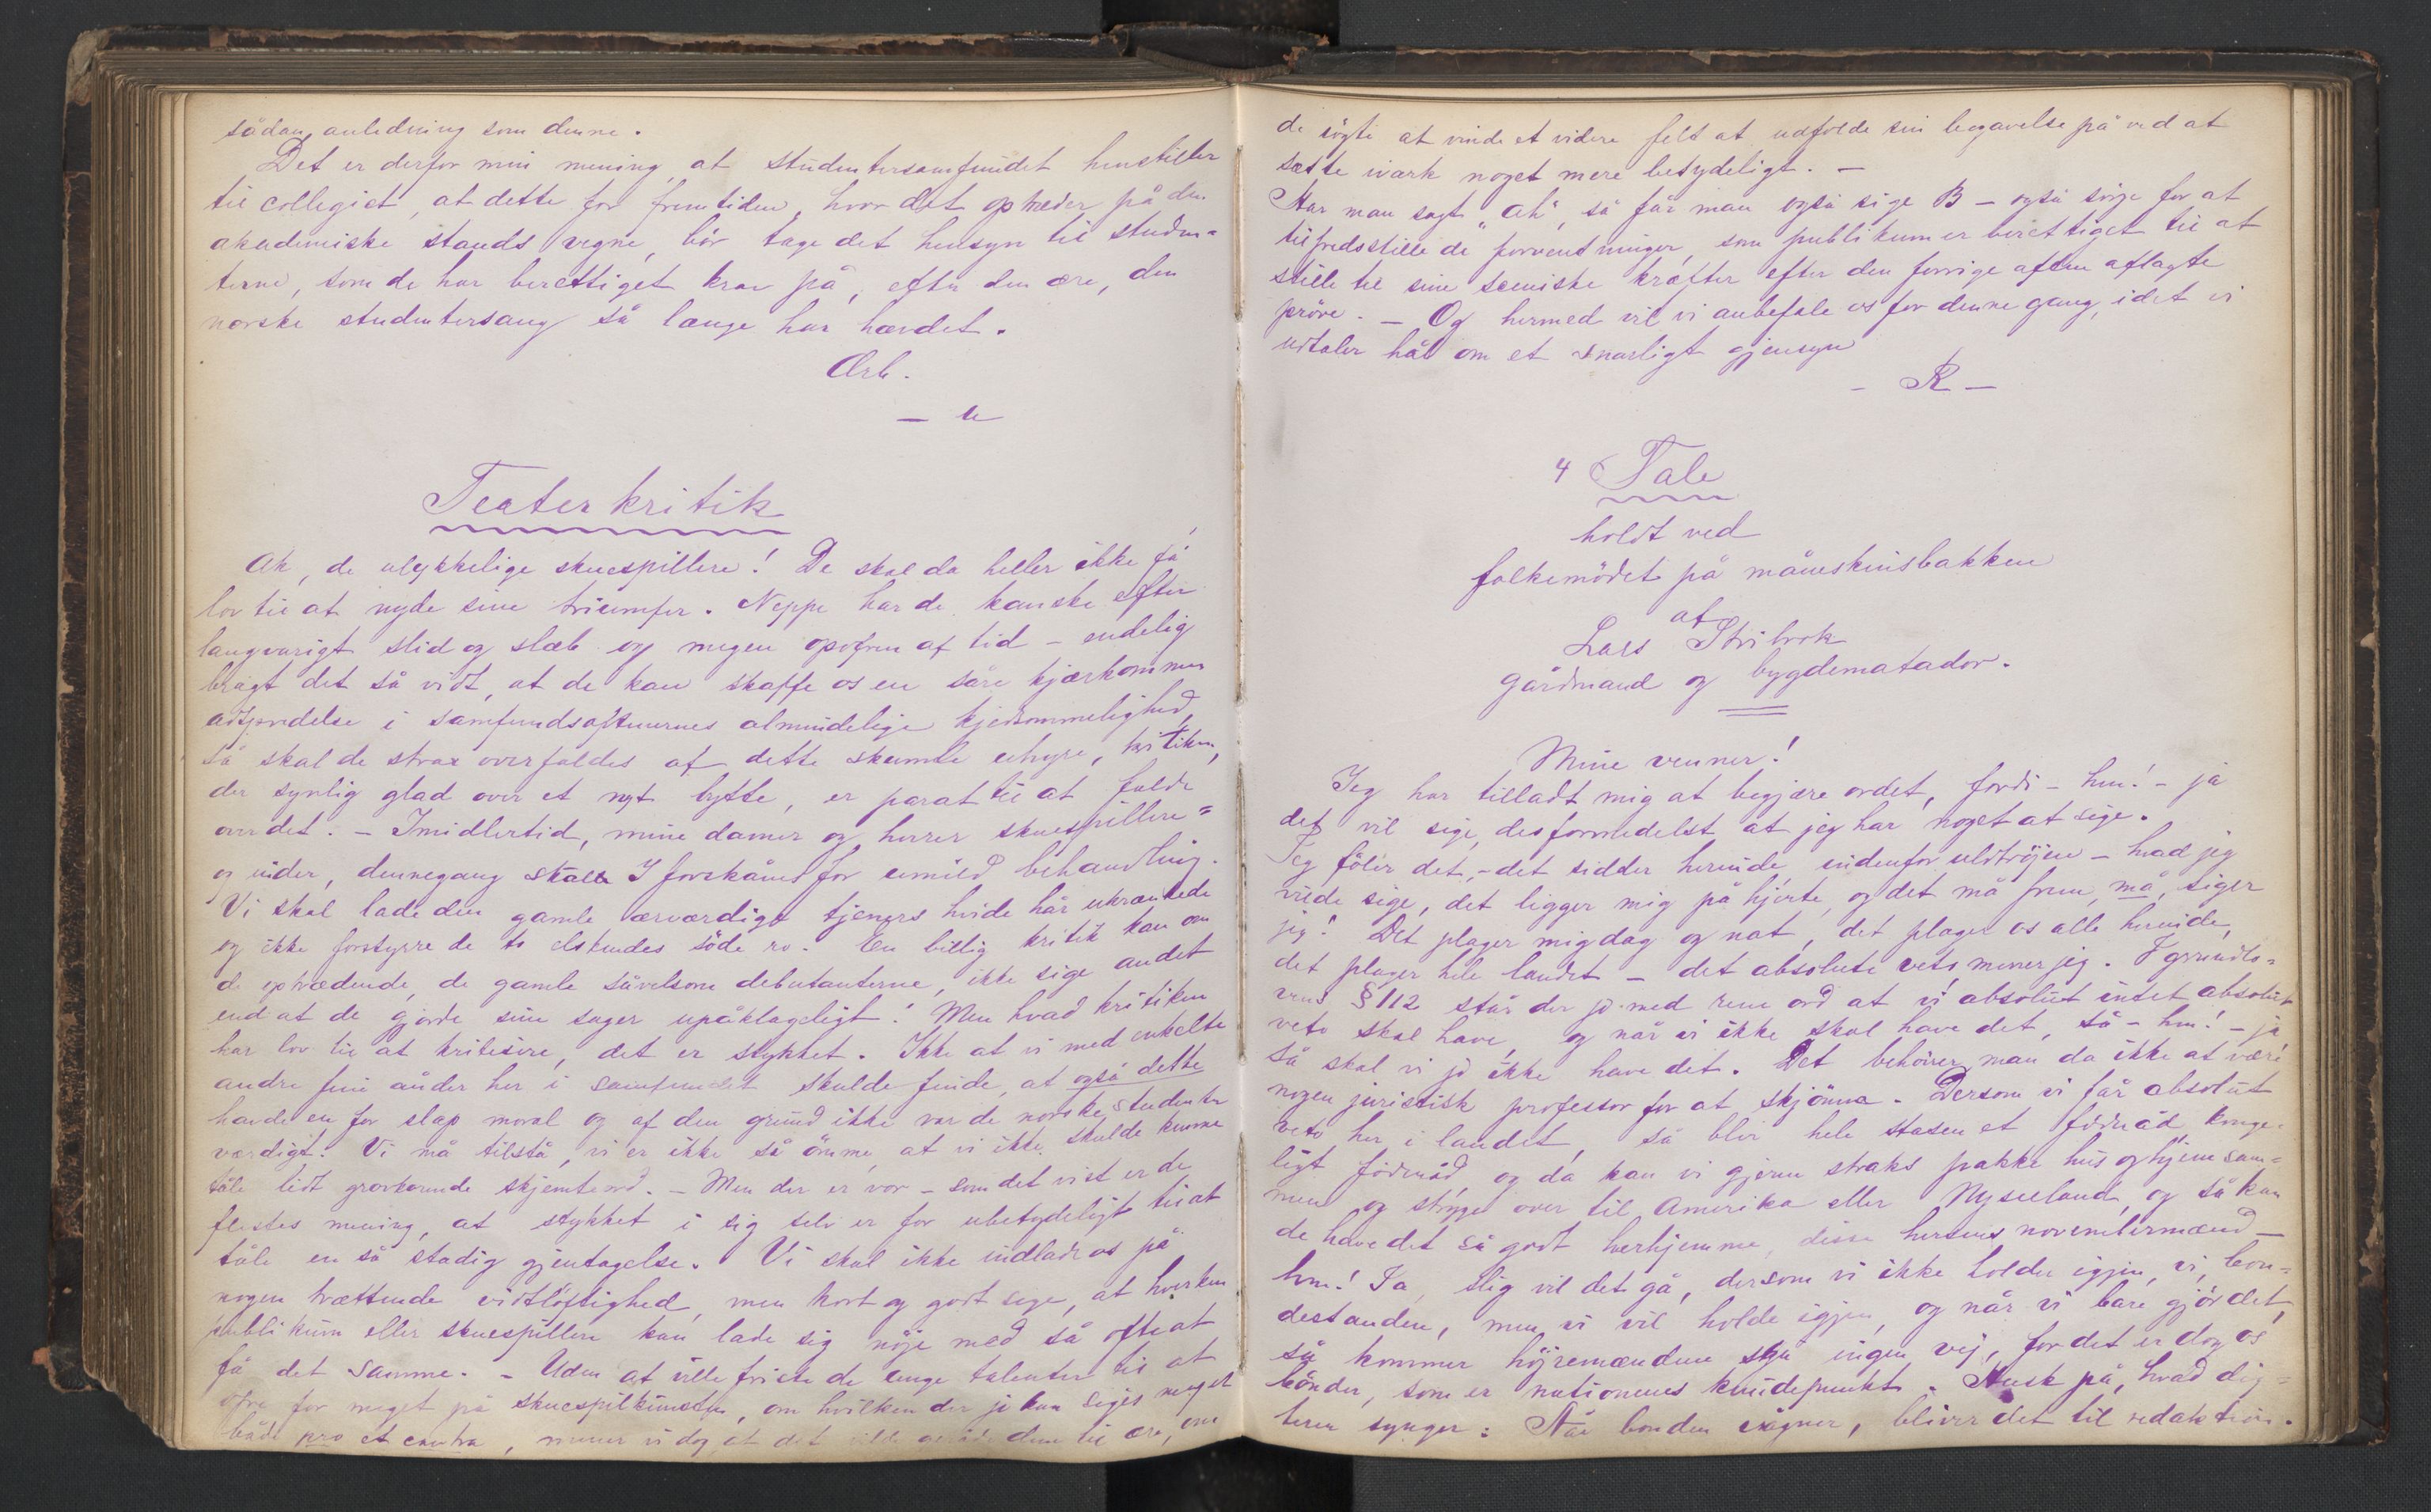 sådan anledning som denne.
Det er derfor min mening, at studentersamfundet henstiller
til collegiet, at dette for fremtiden, hvor det optræder på den
akademiske stands vegne, bör tage det hensyn til studen-
terne, som de har berettiget krav på, efter den ære, den
norske studentersang så længe har hævdet.
Ærb.
– u
Teaterkritik
Ak, de ulykkelige skuespillere! De skal da heller ikke få
lov til at nyde sine triumfer. Neppe har de kanske efter
langvarigt slid og slæb og megen opofren af tid – endelig
bragt det så vidt, at de kan skaffe os en såre kjærkommen
adspredelse i samfundsaftnernes almindelige kjedsommelighed,
så skal de strax overfaldes af dette skumle uhyre, kritiken,
der synlig glad over et nyt bytte, er parat til at falde
over det. – Imidlertid, mine damer og herrer skuespillere=
og inder, dennegang skal I forskånes for umild behandling.
Vi skal lade den gamle ærværdige tjeners hvide hår ukrænkede
og ikke forstyrre de to elskendes söde ro. En billig kritik kan om
de optrædende, de gamle såvelsom debutanterne, ikke sige andet
end at de gjorde sine sager upåklageligt! Men hvad kritiken
har lov til at kritisere, det er stykket. Ikke at vi med enkelte
andre fine ånder her i samfundet skulde finde, at også dette
havde en for slap moral og af den grund ikke var de norske studenter
værdigt. Vi må tilstå, vi er ikke så ömme, at vi ikke skulde kunne
tåle lidt grovkornede skjemteord. – Men der er vor – som det vist er de
flestes mening, at stykket i sig selv er for ubetydeligt til at
tåle en så stadig gjentagelse. Vi skal ikke indlade os på
nogen trættende vidtlöftighed, men kort og godt sige, at hverken
publikum eller skuespillere kan lade sig nöje med så ofte at
få det samme. – Uden at ville friste de unge talenter til at
ofre for meget på skuespilkunsten, om hvilken der jo kan siges meget
både pro et contra, mener vi dog, at det vilde geråde dem til ære, om
de sögte at vinde et videre felt at udfolde sin begavelse på ved at
sætte iværk noget mere betydeligt. –
Har man sagt "ah", så får man også sige B – også sörge for at
tilfredsstille de forventninger, som publikum er berettiget til at
stille til sine sceniske kræfter efter den forrige aften aflagte
pröve. – Og hermed vil vi anbefale os for denne gang, idet vi
udtaler håb om et snarligt gjensyn
– R –
4 Tale
holdt ved
folkemödet på måneskinsbakken
af
Lars Stribrok
gårdmand og bygdematador.
Mine venner!
Jeg har tilladt mig at begjære ordet, fordi – hm! – ja
det vil sige, desformedelst at jeg har noget at sige.
Jeg föler det, – det sidder herinde, indenfor uldtröjen – hvad jeg
vilde sige, det ligger mig på hjerte, og det må frem, må, siger
jeg! Det plager mig dag og nat, det plager os alle herinde,
det plager hele landet – det absolute veto mener jeg. I grundlo-
vens § 112 står der jo med rene ord at vi absolut intet absolut
veto skal have, og når vi ikke skal have det, så – hm! – ja
så skal vi jo ikke have det. Det behöver man da ikke at være
nogen juristisk professor for at skjönne. Dersom vi får absolut
veto her i landet, så blir hele stasen et förnåd konge-
ligt förnåd, og da kan vi gjerne straks pakke hus og hjem sam-
men og stryge over til Amerika eller Nyseeland, og så kan
de have det så godt herhjemme, disse hersens novembermænd –
hm! Ja, slig vil det gå, dersom vi ikke holder igjen, vi, bon-
destanden, men vi vil holde igjen, og når vi bare gjör det,
så kommer höjremændene slig ingen vej, for det er dog os
bönder, som er nationenes knudepunkt. Husk på, hvad dig-
teren synger: Når bonden vågner, bliver det til redaktion.